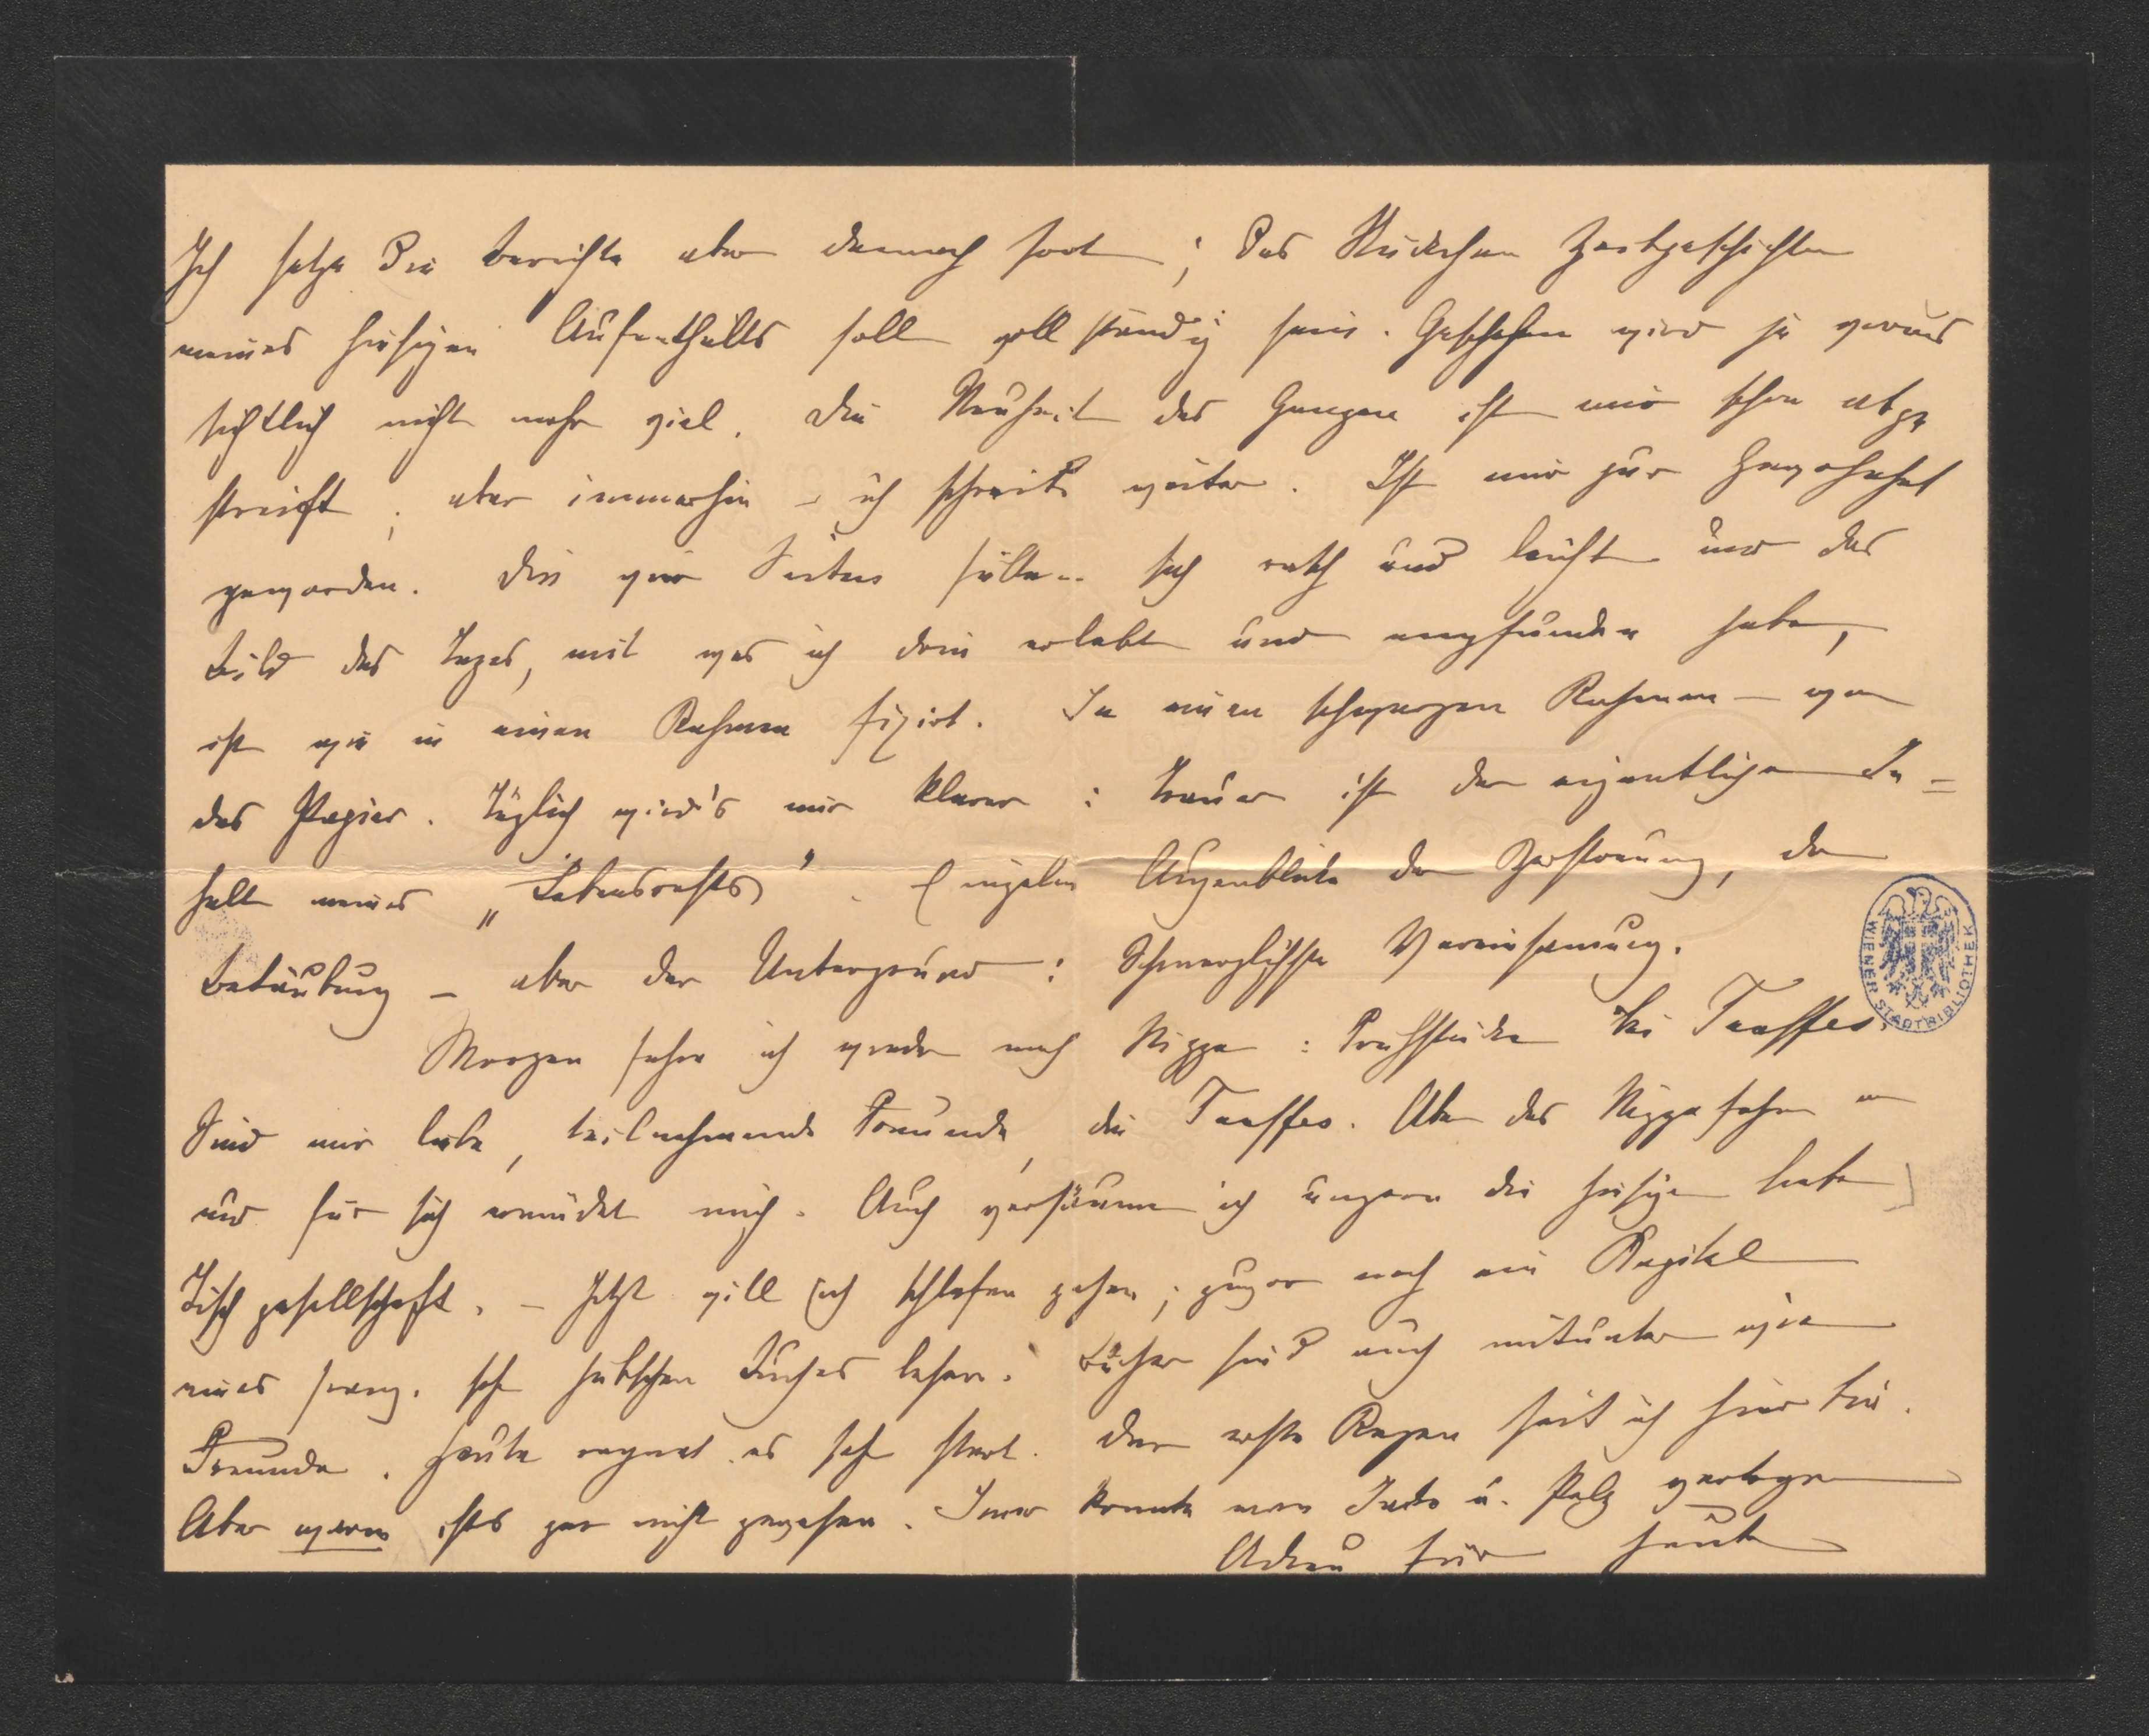 Ich setze die Berichte aber dennoch fort; das Stückchen Zeitgeschichten
meines hiesigen Aufenthalts soll vollständig sein. Geschehen wird ja voraus
sichtlich nicht mehr viel. Die Neuheit des Ganzen ist mir schon abge
streift; aber immerhin – ich schreibe weiter. Ist mir zur Gewohnheit
geworden. Die vier Seiten füllen sich rasch und leicht und das
Bild des Tages, mit was ich drin erlebt und empfunden habe,
ist wie in einen Rahmen fixirt. In einen schwarzen Rahmen – wie
das Papier. Täglich wird's mir klarer: Trauer ist der eigentliche In-
halt meines „Lebensrests". Einzelne Augenblicke der Zerstreuung, der
Betäubung – aber der Untergrund: Schmerzlichste Vereinsamung.
Morgen fahre ich wieder nach Nizza: Frühstücke bei Taaffes.
Sind mir liebe, teilnehmende Freunde, die Taaffes. Aber das Nizzafahren an
und für sich ermüdet mich. Auch versäume ich ungern die hiesige liebe
Tischgesellschaft. – Jetzt will ich schlafen gehen; zuvor noch ein Kapitel
eines franz. sehr hübschen Buches lesen. Bücher sind auch mitunter wie
Freunde. Heute regnet es sehr stark. Der erste Regen seit ich hier bin.
Aber warm ists gar nicht gewesen. Immer konnte man Jacke u. Pelz vertragen
Adieu für heute
WIENER STADTBIBLIOTHEK